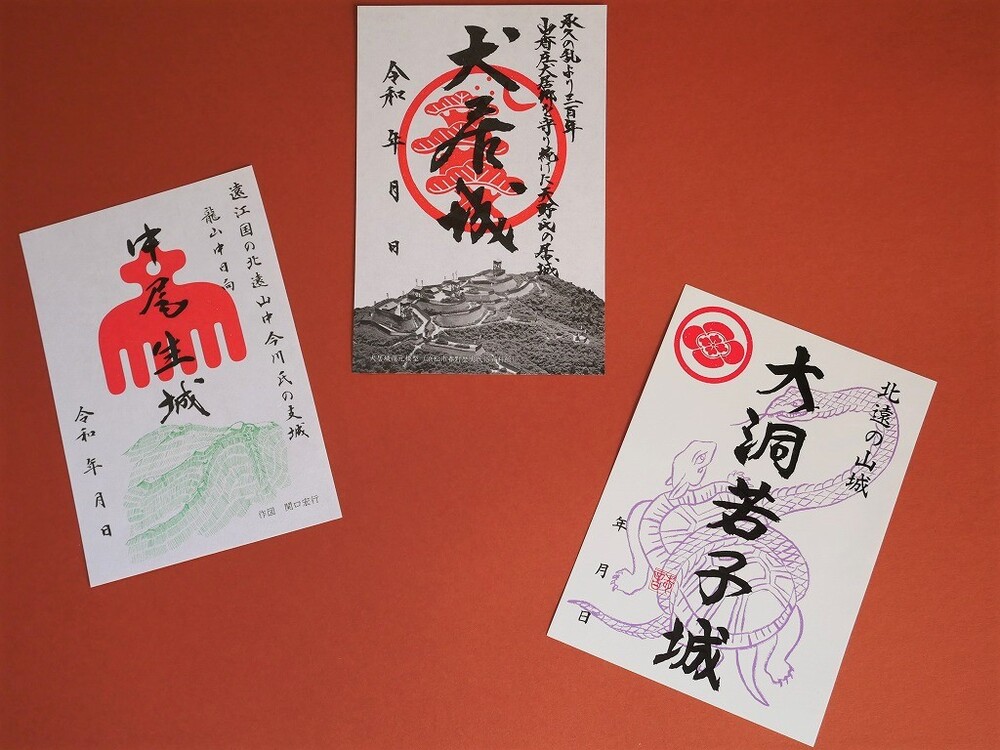 遠江国の北遠山中今川氏の支城
龍山中日向
中尾生城
令和 年 月 日
作図 関口宏行
承久の乱より三百年
山香庄犬居郷を守り続けた天野氏の居城
犬居城
令和 年 月 日
北遠の山城
大洞若子城
年 月 日